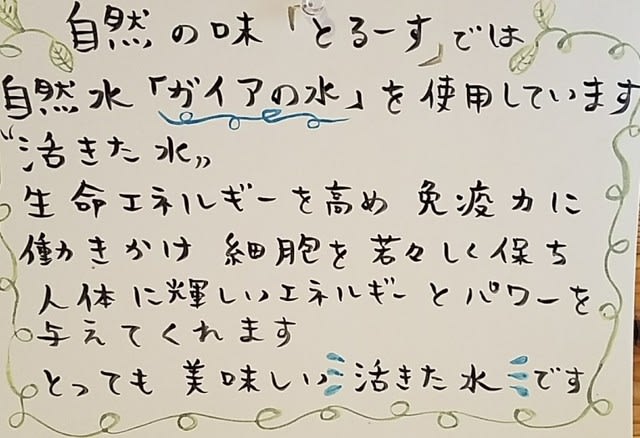 自然の味「とるーす」では
自然水「ガイアの水」を使用しています
“活きた水„
生命エネルギーを高め 免疫力に
働きかけ 細胞を若々しく保ち
人体に輝しいエネルギーとパワーを
与えてくれます
とっても美味しい活きた水です